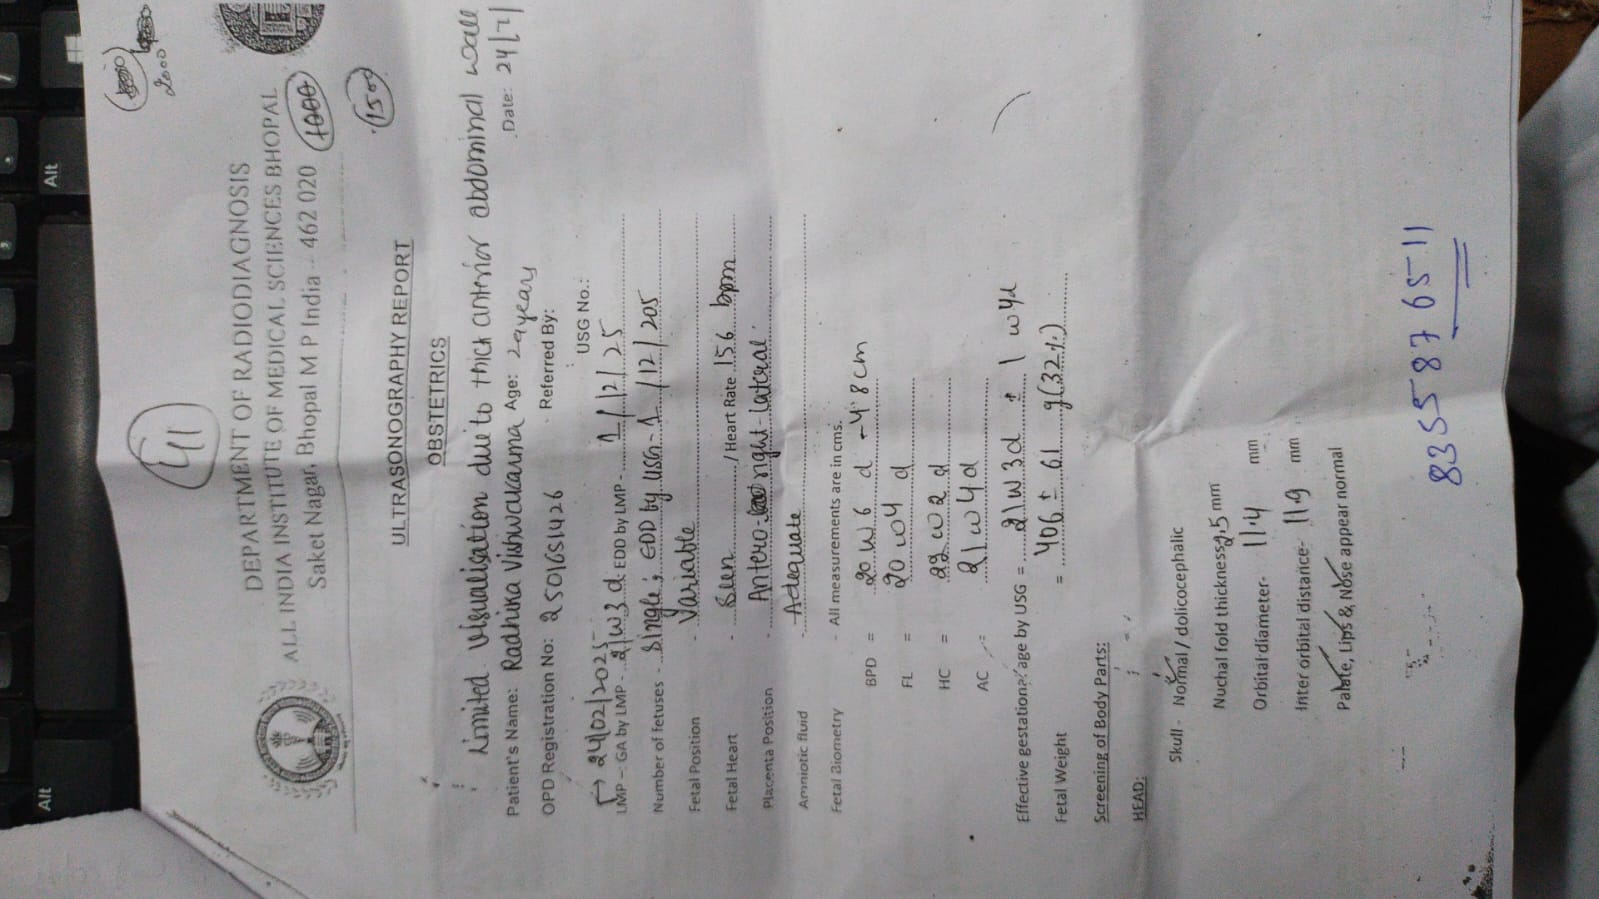 41
2000
DEPARTMENT OF RADIODIAGNOSIS
ALL INDIA INSTITUTE OF MEDICAL SCIENCES BHOPAL
Saket Nagar, Bhopal M P India - 462 020
1000
1500
ULTRASONOGRAPHY REPORT
OBSTETRICS
Limited visualisation due to thick anterior abdominal wall
Patient's Name: Radhika Vishwakarma Age: 29year Date: 24/7/
OPD Registration No: 2501651426 - Referred By:
USG No.:
→ 24/02/2025
LMP - GA by LMP - 21w3d. EDD by LMP - 1/12/25
Number of fetuses - Single ; EDD by USG - 1/12/205
Fetal Position - Variable
Fetal Heart - Seen / Heart Rate 156 bpm
Placenta Position - Antero right-lateral
Amniotic fluid - Adequate
Fetal Biometry - All measurements are in cms.
BPD = 20w6d - 4.8cm
FL = 20w4d
HC = 22w2d
AC = 21w4d
Effective gestational age by USG = 21w3d ± 1w4d
Fetal Weight = 406 ± 61 g(32%)
Screening of Body Parts:
HEAD:
Skull - Normal / dolicocephalic
Nuchal fold thickness 3.5 mm
Orbital diameter- 11.4 mm
Inter orbital distance- 11.9 mm
Palate, Lips & Nose appear normal
8355876511
Alt
Alt